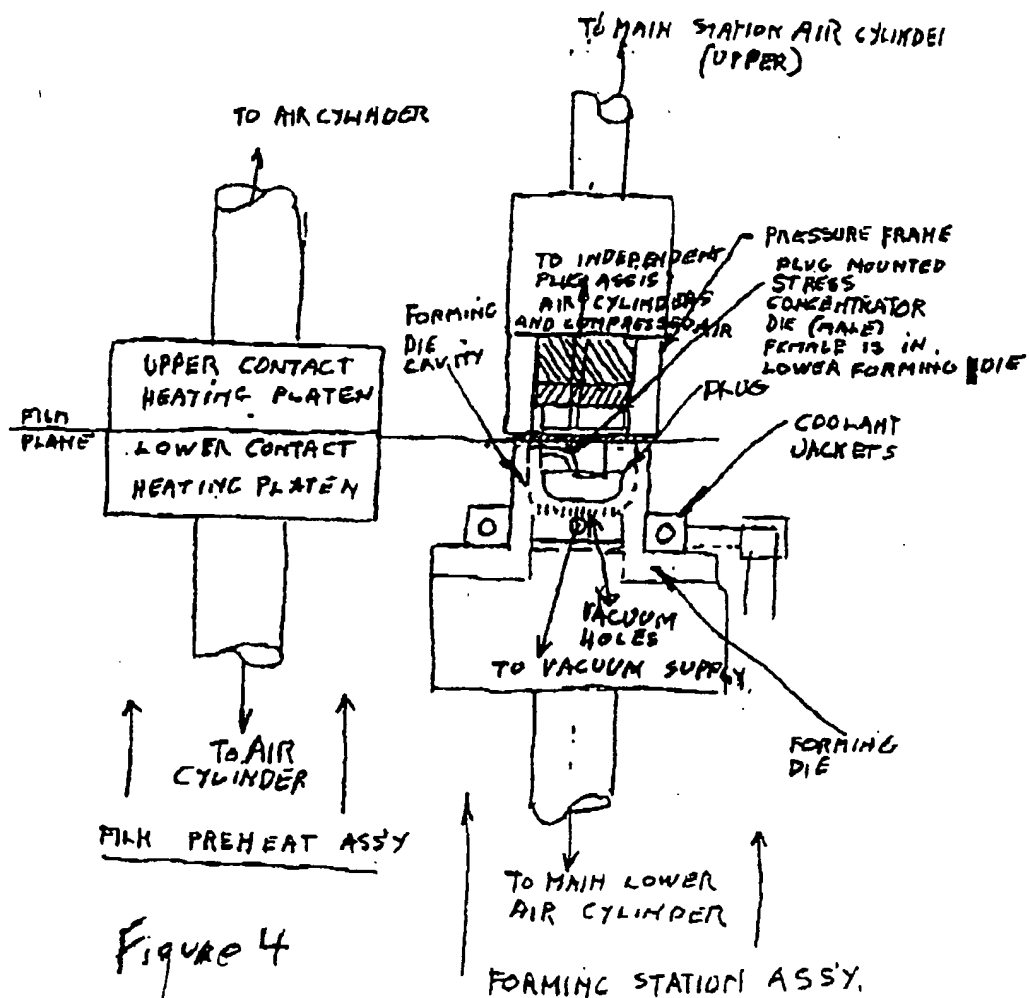 TO MAIN STATION AIR CYLINDE
(UPPER)
TO AIR CYLINDER
TO INDEPENDENT
PLUG ASSIS
AIR CYLINDERS
AND COMPRESSED AIR
PRESSURE FRAME
PLUG MOUNTED
STRESS
CONCENTRATOR
DIE (MALE)
FEMALE IS IN
LOWER FORMING DIE
FORMING
DIE
CAVITY
PLUG
UPPER CONTACT
HEATING PLATEN
FILM
PLANE
LOWER CONTACT
HEATING PLATEN
COOLANT
JACKETS
VACUUM
HOLES
TO VACUUM SUPPLY
FORMING
DIE
TO AIR
CYLINDER
FILM PREHEAT ASS'Y
TO MAIN LOWER
AIR CYLINDER
Figure 4
FORMING STATION ASS'Y.